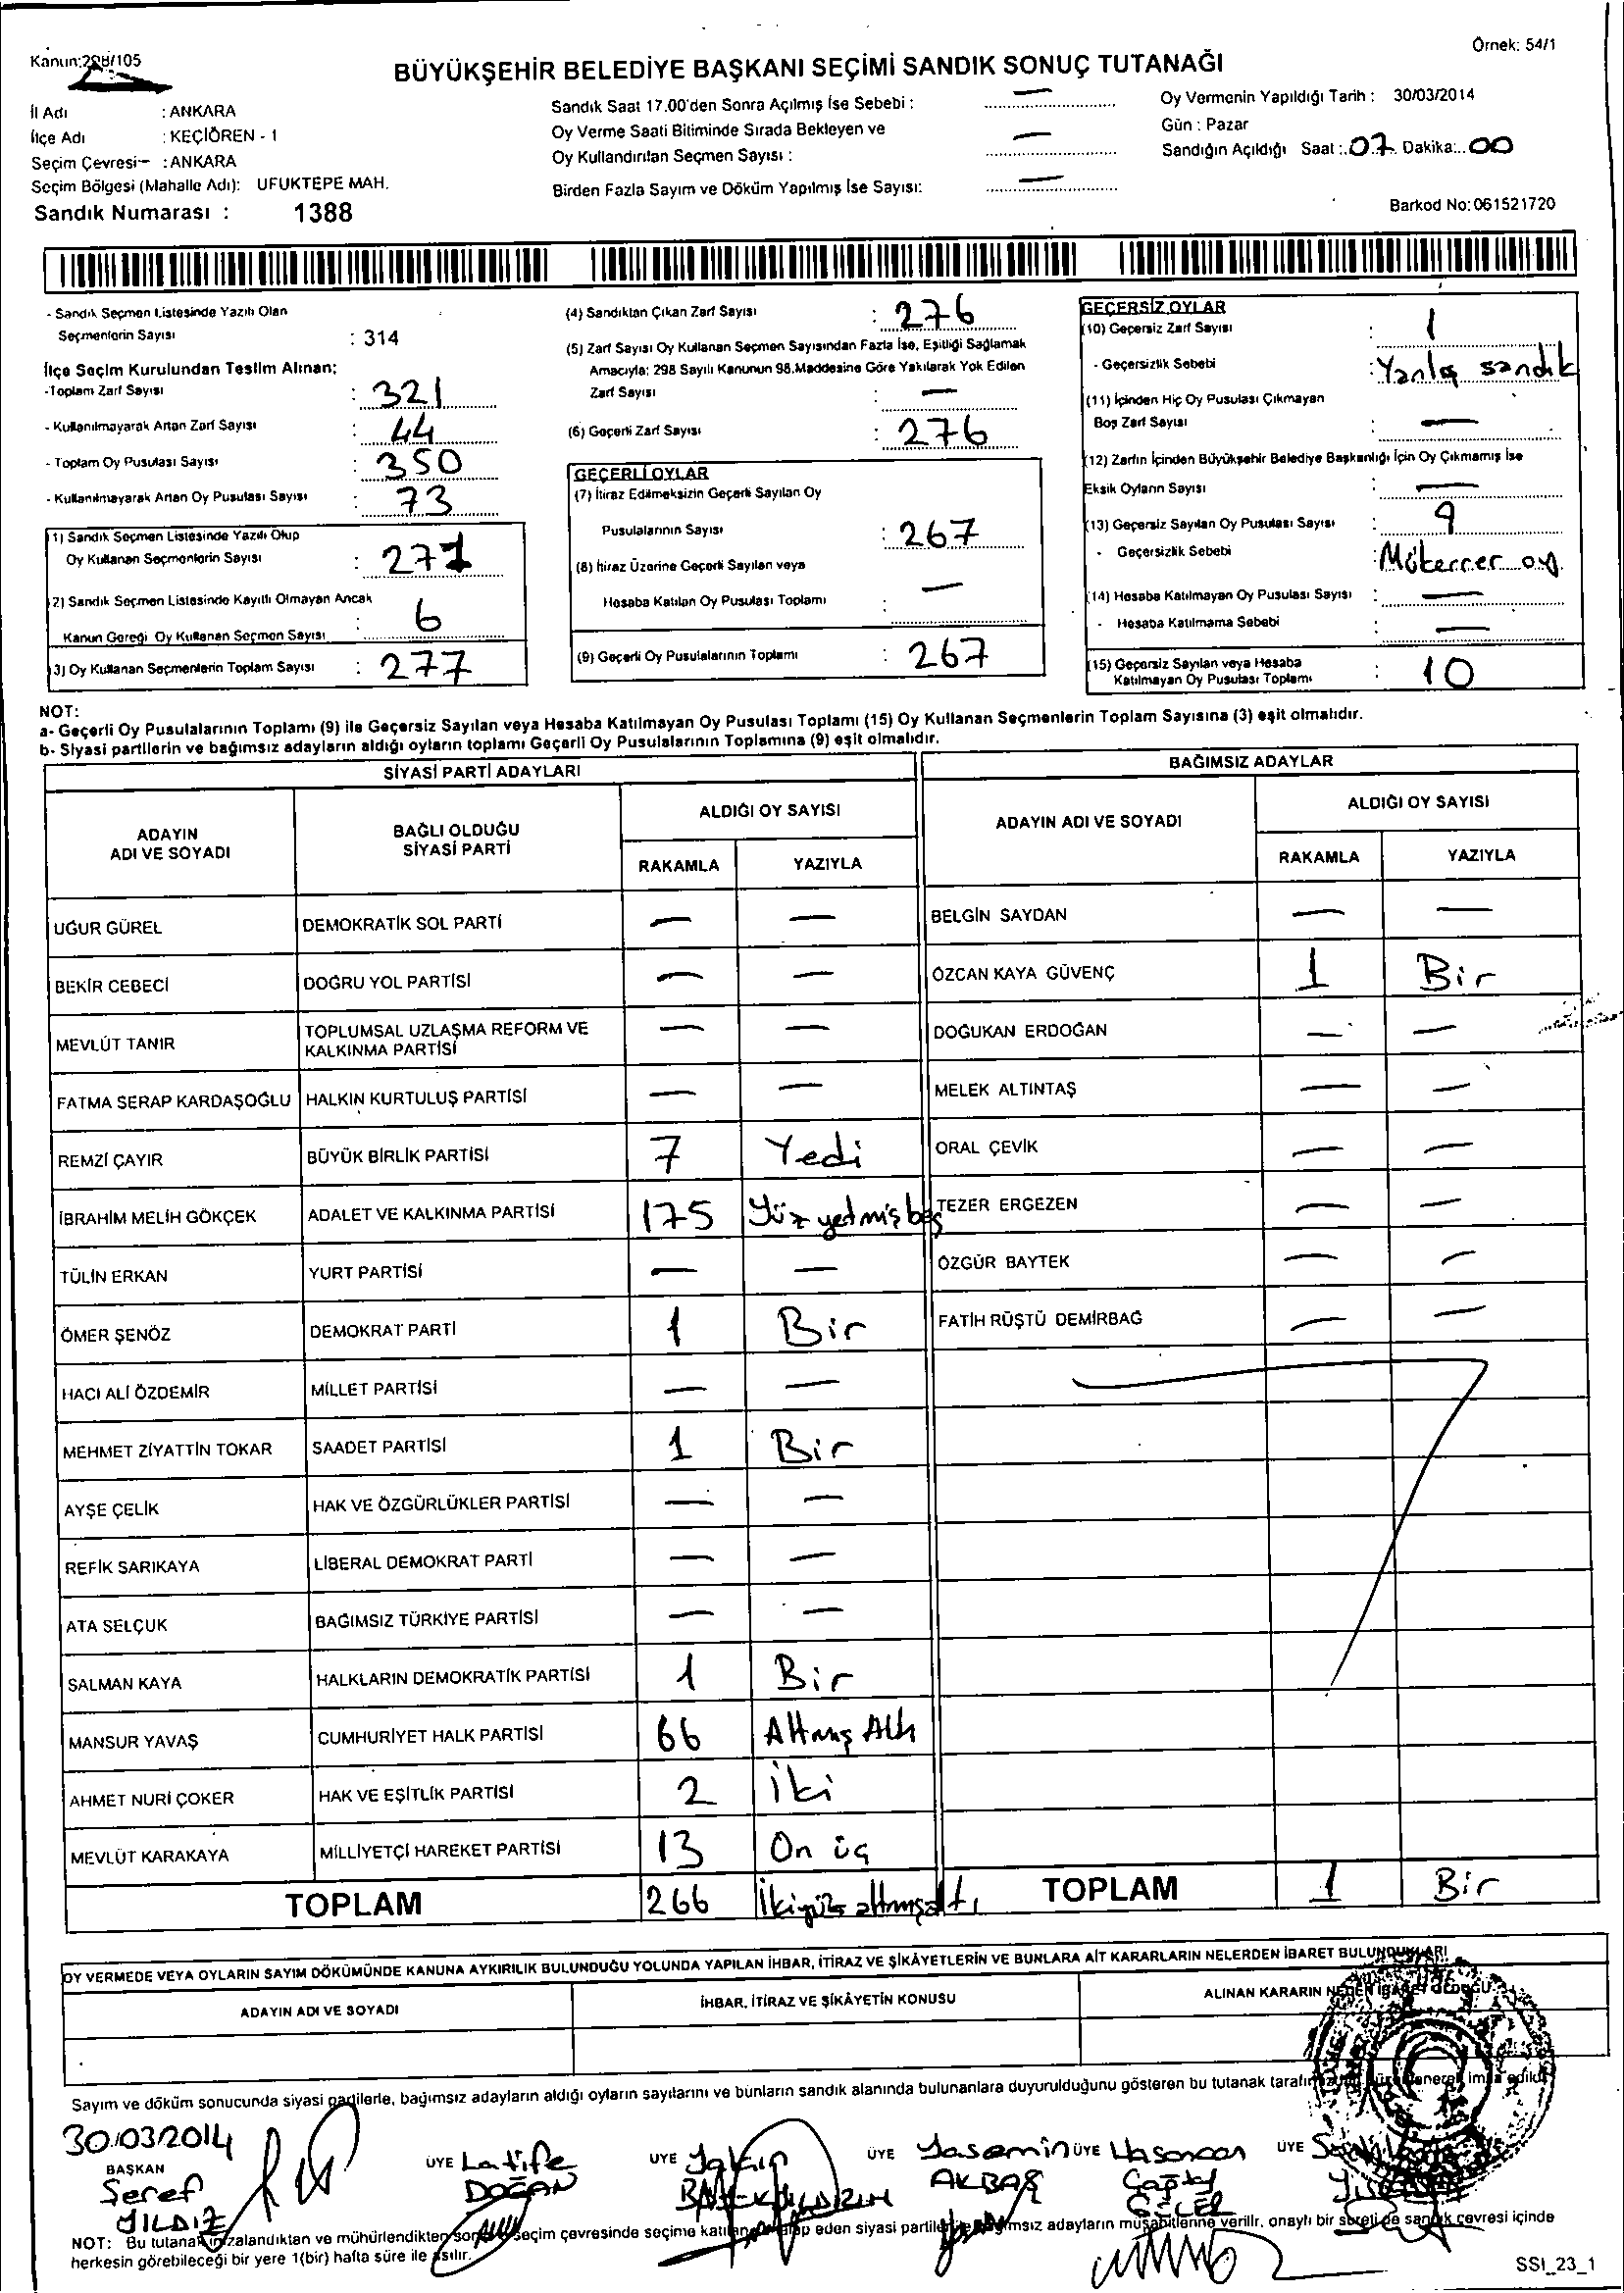 Kanun:298/105
Örnek: 54/1
BÜYÜKŞEHİR BELEDİYE BAŞKANI SEÇİMİ SANDIK SONUÇ TUTANAĞI
İl Adı : ANKARA
İlçe Adı : KEÇİÖREN - 1
Seçim Çevresi : ANKARA
Seçim Bölgesi (Mahalle Adı): UFUKTEPE MAH.
Sandık Numarası : 1388
Sandık Saat 17.00'den Sonra Açılmış İse Sebebi : —
Oy Verme Saati Bitiminde Sırada Bekleyen ve
Oy Kullandırılan Seçmen Sayısı : —
Birden Fazla Sayım ve Döküm Yapılmış İse Sayısı: —
Oy Vermenin Yapıldığı Tarih : 30/03/2014
Gün : Pazar
Sandığın Açıldığı Saat : 07 Dakika: 00
Barkod No: 061521720
- Sandık Seçmen Listesinde Yazılı Olan
Seçmenlerin Sayısı : 314
İlçe Seçim Kurulundan Teslim Alınan;
-Toplam Zarf Sayısı : 321
- Kullanılmayarak Artan Zarf Sayısı : 44
- Toplam Oy Pusulası Sayısı : 350
- Kullanılmayarak Artan Oy Pusulası Sayısı : 73
1) Sandık Seçmen Listesinde Yazılı Olup
Oy Kullanan Seçmenlerin Sayısı : 271
2) Sandık Seçmen Listesinde Kayıtlı Olmayan Ancak
Kanun Gereği Oy Kullanan Seçmen Sayısı : 6
3) Oy Kullanan Seçmenlerin Toplam Sayısı : 277
(4) Sandıktan Çıkan Zarf Sayısı : 276
(5) Zarf Sayısı Oy Kullanan Seçmen Sayısından Fazla İse, Eşitliği Sağlamak
Amacıyla; 298 Sayılı Kanunun 98.Maddesine Göre Yakılarak Yok Edilen
Zarf Sayısı : —
(6) Geçerli Zarf Sayısı : 276
GEÇERLİ OYLAR
(7) İtiraz Edilmeksizin Geçerli Sayılan Oy
Pusulalarının Sayısı : 267
(8) İtiraz Üzerine Geçerli Sayılan veya
Hesaba Katılan Oy Pusulası Toplamı : —
(9) Geçerli Oy Pusulalarının Toplamı : 267
GEÇERSİZ OYLAR
(10) Geçersiz Zarf Sayısı : 1
- Geçersizlik Sebebi : Yanlış sandık
(11) İçinden Hiç Oy Pusulası Çıkmayan
Boş Zarf Sayısı : —
(12) Zarfın İçinden Büyükşehir Belediye Başkanlığı İçin Oy Çıkmamış İse
Eksik Oyların Sayısı : —
(13) Geçersiz Sayılan Oy Pusulası Sayısı : 9
- Geçersizlik Sebebi : Mükerrer oy.
(14) Hesaba Katılmayan Oy Pusulası Sayısı : —
- Hesaba Katılmama Sebebi : —
(15) Geçersiz Sayılan veya Hesaba
Katılmayan Oy Pusulası Toplamı : 10
NOT:
a- Geçerli Oy Pusulalarının Toplamı (9) ile Geçersiz Sayılan veya Hesaba Katılmayan Oy Pusulası Toplamı (15) Oy Kullanan Seçmenlerin Toplam Sayısına (3) eşit olmalıdır.
b- Siyasi partilerin ve bağımsız adayların aldığı oyların toplamı Geçerli Oy Pusulalarının Toplamına (9) eşit olmalıdır.
SİYASİ PARTİ ADAYLARI
ADAYIN ADI VE SOYADI
BAĞLI OLDUĞU SİYASİ PARTİ
ALDIĞI OY SAYISI
RAKAMLA YAZIYLA
UĞUR GÜREL DEMOKRATİK SOL PARTİ — —
BEKİR CEBECİ DOĞRU YOL PARTİSİ — —
MEVLÜT TANIR TOPLUMSAL UZLAŞMA REFORM VE KALKINMA PARTİSİ — —
FATMA SERAP KARDAŞOĞLU HALKIN KURTULUŞ PARTİSİ — —
REMZİ ÇAYIR BÜYÜK BİRLİK PARTİSİ 7 Yedi
İBRAHİM MELİH GÖKÇEK ADALET VE KALKINMA PARTİSİ 175 Yüz yetmiş beş
TÜLİN ERKAN YURT PARTİSİ — —
ÖMER ŞENÖZ DEMOKRAT PARTİ 1 Bir
HACI ALİ ÖZDEMİR MİLLET PARTİSİ — —
MEHMET ZİYATTİN TOKAR SAADET PARTİSİ 1 Bir
AYŞE ÇELİK HAK VE ÖZGÜRLÜKLER PARTİSİ — —
REFİK SARIKAYA LİBERAL DEMOKRAT PARTİ — —
ATA SELÇUK BAĞIMSIZ TÜRKİYE PARTİSİ — —
SALMAN KAYA HALKLARIN DEMOKRATİK PARTİSİ 1 Bir
MANSUR YAVAŞ CUMHURİYET HALK PARTİSİ 66 Altmış Altı
AHMET NURİ ÇOKER HAK VE EŞİTLİK PARTİSİ 2 İki
MEVLÜT KARAKAYA MİLLİYETÇİ HAREKET PARTİSİ 13 On üç
TOPLAM 266 İkiyüz altmışaltı
BAĞIMSIZ ADAYLAR
ADAYIN ADI VE SOYADI
ALDIĞI OY SAYISI
RAKAMLA YAZIYLA
BELGİN SAYDAN — —
ÖZCAN KAYA GÜVENÇ 1 Bir
DOĞUKAN ERDOĞAN — —
MELEK ALTINTAŞ — —
ORAL ÇEVİK — —
TEZER ERGEZEN — —
ÖZGÜR BAYTEK — —
FATİH RÜŞTÜ DEMİRBAĞ — —
TOPLAM 1 Bir
OY VERMEDE VEYA OYLARIN SAYIM DÖKÜMÜNDE KANUNA AYKIRILIK BULUNDUĞU YOLUNDA YAPILAN İHBAR, İTİRAZ VE ŞİKÂYETLERİN VE BUNLARA AİT KARARLARIN NELERDEN İBARET BULUNDUKLARI
ADAYIN ADI VE SOYADI
İHBAR, İTİRAZ VE ŞİKÂYETİN KONUSU
ALINAN KARARIN NEDEN İBARET OLDUĞU
Sayım ve döküm sonucunda siyasi partilerle, bağımsız adayların aldığı oyların sayılarını ve bunların sandık alanında bulunanlara duyurulduğunu gösteren bu tutanak
30.03.2014
BAŞKAN
Şeref
YILDIZ
ÜYE Latife
DOĞAN
ÜYE
ÜYE Yasemin
AKBAŞ
ÜYE Hasancan
Çağtay
GÜLER
ÜYE
NOT: Bu tutanak imzalandıktan ve mühürlendikten sonra seçim çevresinde seçime katılan, talep eden siyasi partilerle bağımsız adayların müşahitlerine verilir, onaylı bir sureti de sandık çevresi içinde
herkesin görebileceği bir yere 1(bir) hafta süre ile asılır.
SSI_23_1